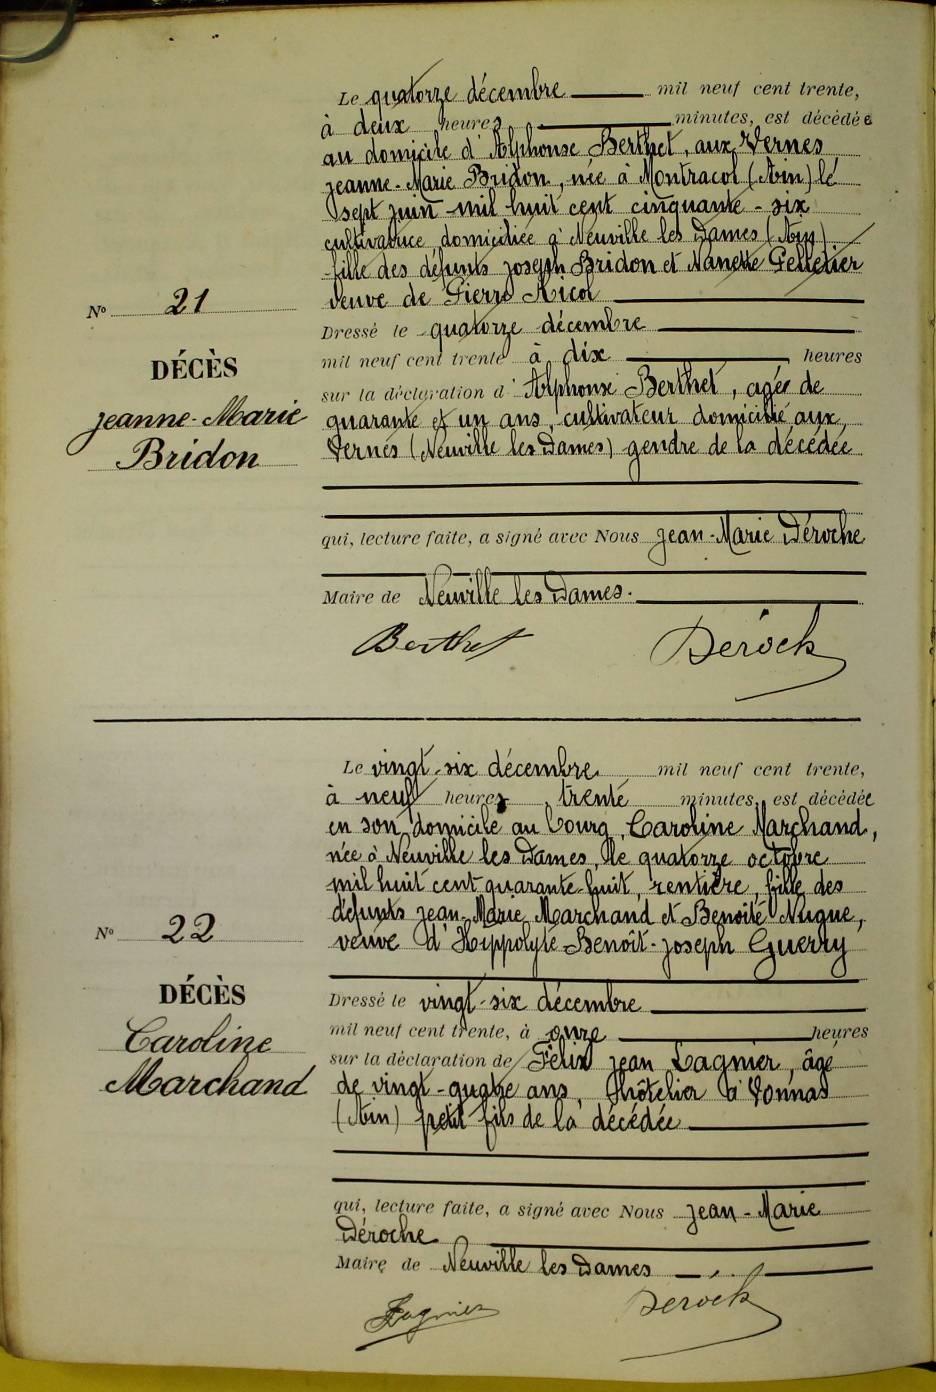 Le quatorze décembre mil neuf cent trente,
à deux heures minutes, est décédée
au domicile d'Alphonse Berthet, aux Vernes
Jeanne-Marie Bridon, née à Montracol (Ain) le
sept juin mil huit cent cinquante-six
cultivatrice domiciliée à Neuville les Dames (Ain)
fille des défunts Joseph Bridon et Nanette Pelletier
veuve de Pierre Nicol
N° 21
DÉCÈS
Jeanne-Marie
Bridon
Dressé le quatorze décembre
mil neuf cent trente à dix heures
sur la déclaration d'Alphonse Berthet, agé de
quarante et un ans, cultivateur domicilié aux
Vernes (Neuville les Dames) gendre de la décédée
qui, lecture faite, a signé avec Nous Jean-Marie Déroche
Maire de Neuville les Dames.
Berthet Déroch
Le vingt-six décembre mil neuf cent trente,
à neuf heures trente minutes, est décédée
en son domicile au bourg, Caroline Marchand,
née à Neuville les Dames, le quatorze octobre
mil huit cent quarante-huit, rentière, fille des
défunts Jean-Marie Marchand et Benoite Nugue,
veuve d'Hippolyte-Benoît-Joseph Guerry
N° 22
DÉCÈS
Caroline
Marchand
Dressé le vingt-six décembre
mil neuf cent trente, à onze heures
sur la déclaration de Félix Jean Lagnier, âgé
de vingt-quatre ans, hôtelier à Vonnas
(Ain) petit fils de la décédée
qui, lecture faite, a signé avec Nous Jean-Marie
Déroche
Maire de Neuville les Dames
Lagnier Déroch